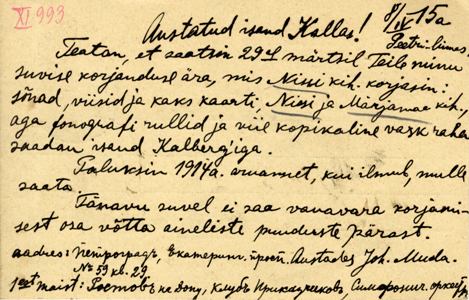 XI 993
Austatud isand Kallas! 8/IV 15a
Peetrilinnas.
Teatan, et saatsin 29-l märtsil Teile minu
suvise korjanduse ära, mis Nissi kih. korjasin:
sõnad, viisid ja kaks kaarti, Nissi ja Märjamaa kih,
aga fonografi rullid ja viie kopikaline vask raha
saadan isand Kalberg'iga.
Paluksin 1914a. aruannet, kui ilmub, mulle
saata.
Tänavu suvel ei saa vanavara korjami-
sest osa võtta aineliste puuduste pärast.
aadres: Петроградъ, Екатерин. Austades Joh. Muda.
№ 59 кв. 29
1-est maist: Ростовъ на Дону, Клубъ Приказчиковъ, Симфонич. оркестр